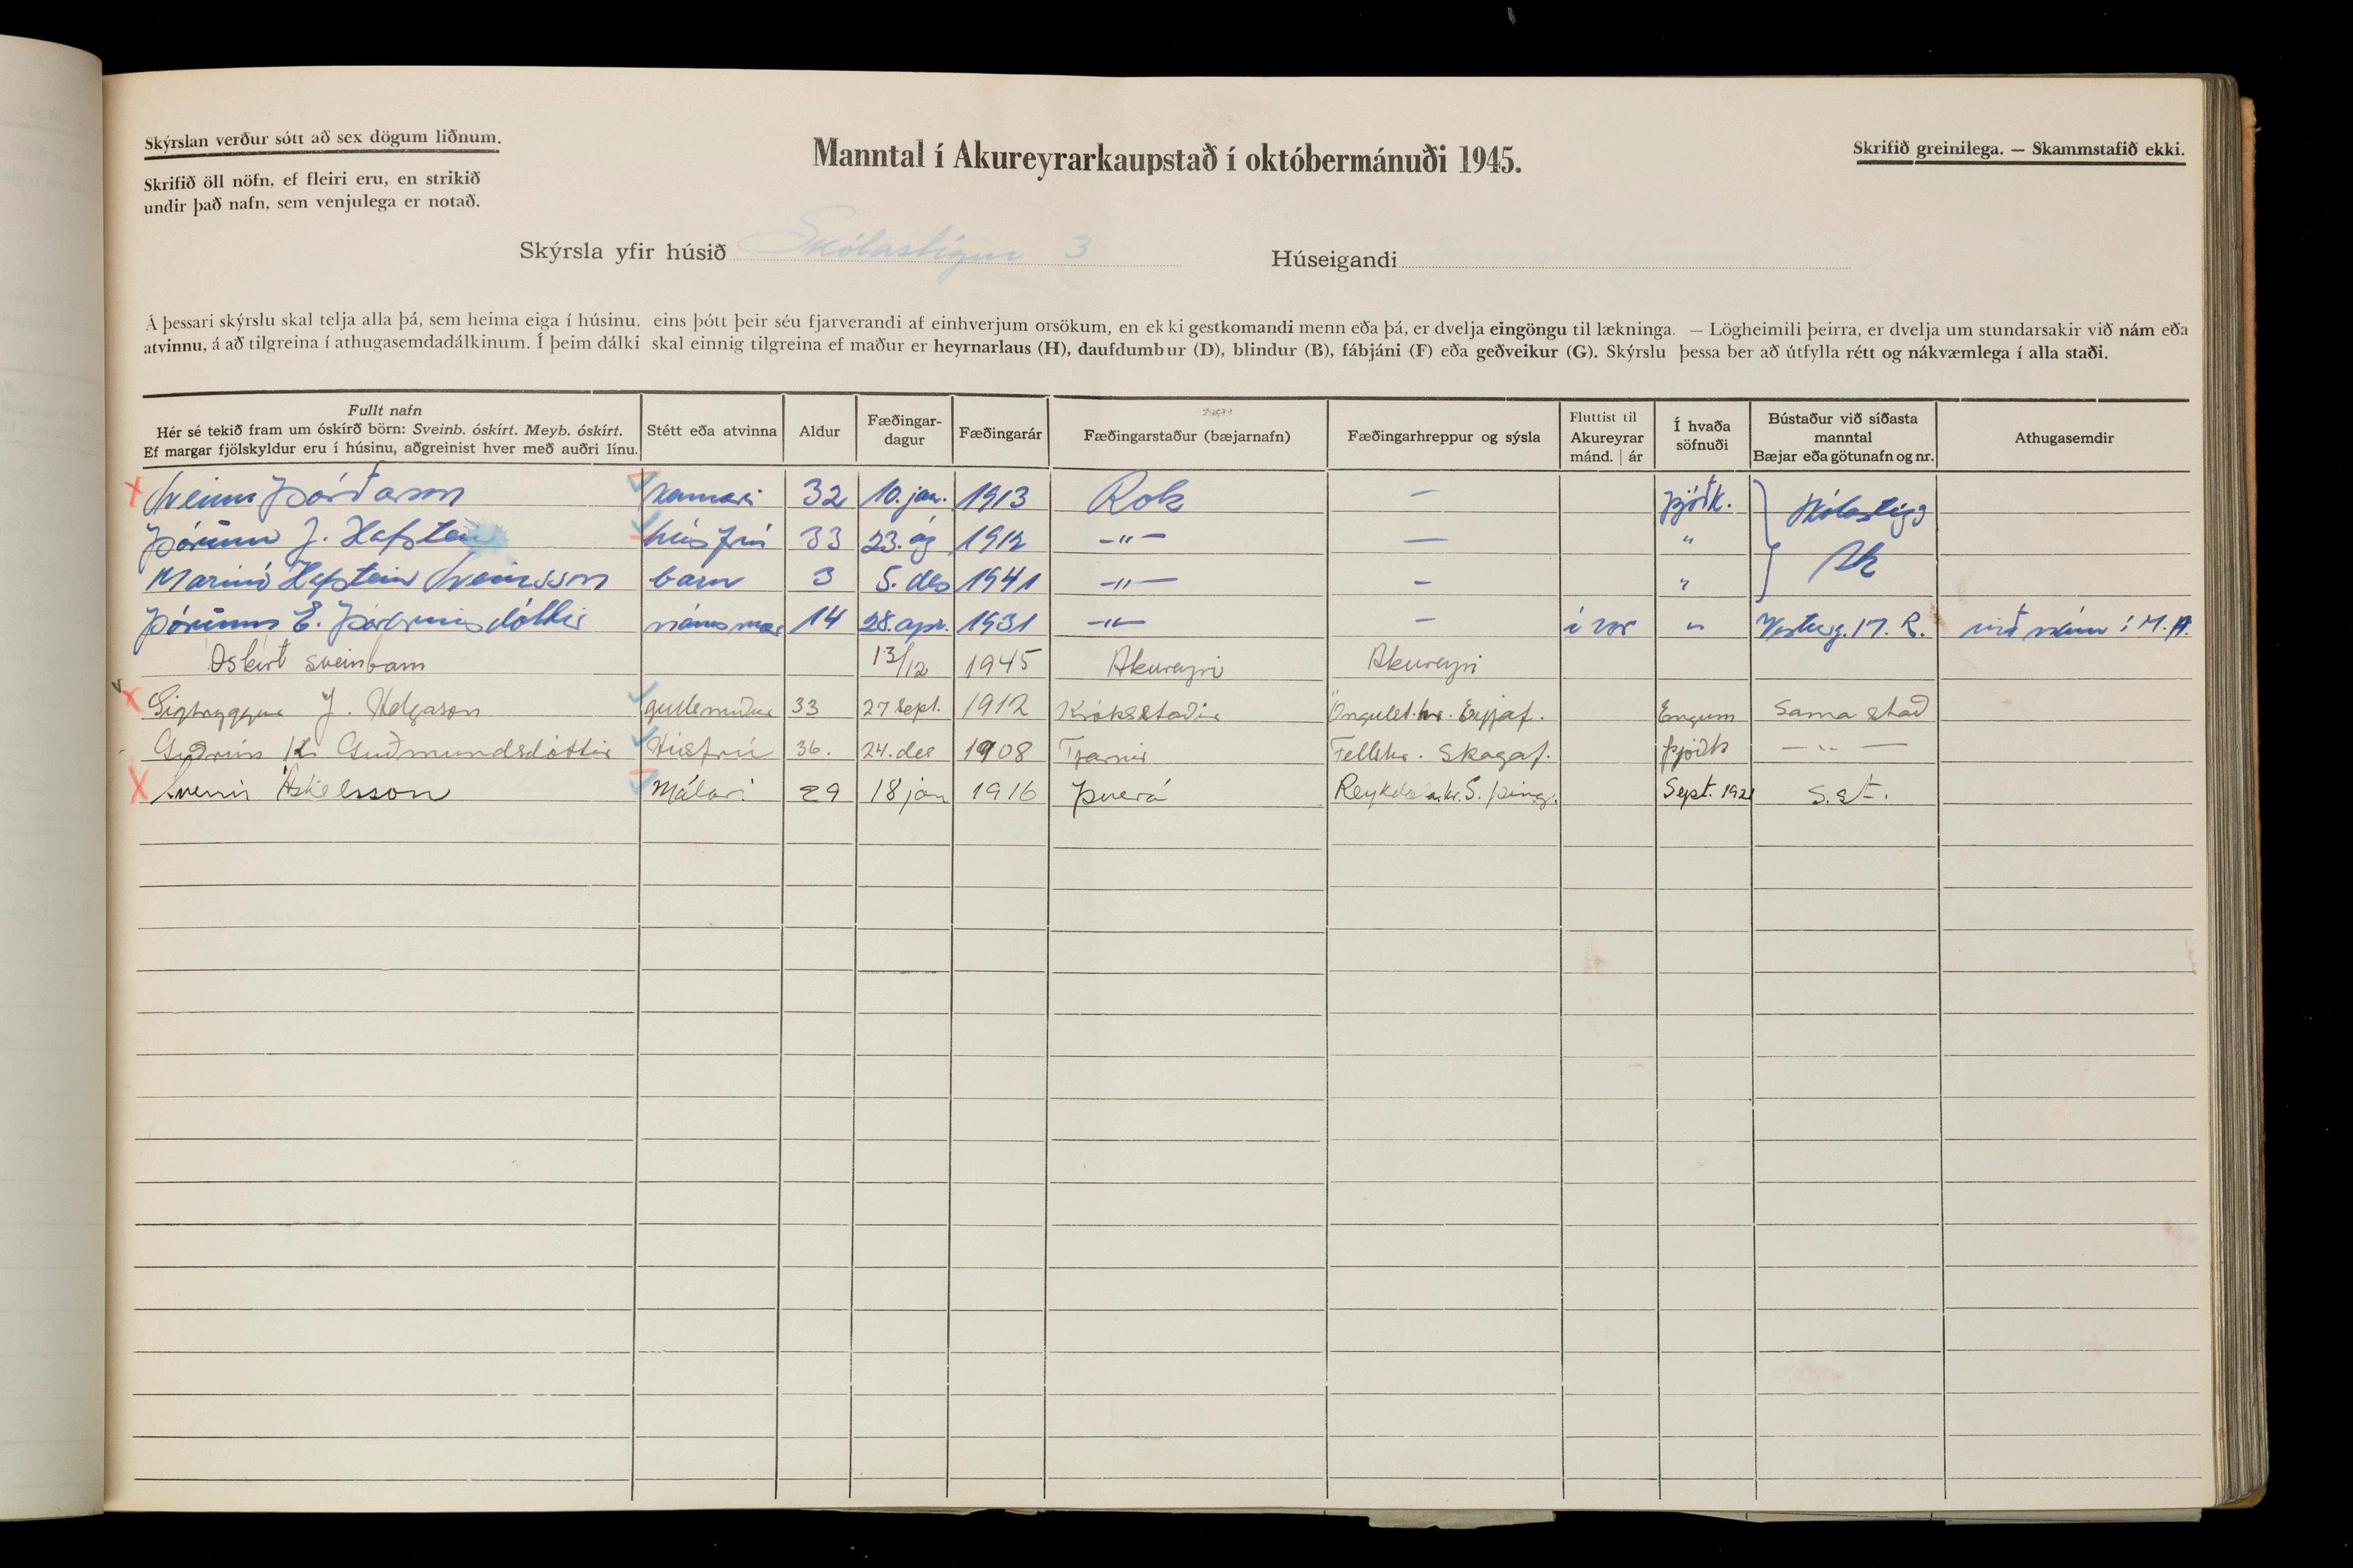 Skýrslan verður sótt að sex dögum liðnum.
Skrifið öll nöfn, ef fleiri eru, en strikið
undir það nafn, sem venjulega er notað.
Manntal í Akureyrarkaupstað í októbermánuði 1945.
Skrifið greinilega. — Skammstafið ekki.
Skýrsla yfir húsið Skólastígur 3 Húseigandi
Á þessari skýrslu skal telja alla þá, sem heima eiga í húsinu, eins þótt þeir séu fjarverandi af einhverjum orsökum, en ekki gestkomandi menn eða þá, er dvelja eingöngu til lækninga. — Lögheimili þeirra, er dvelja um stundarsakir við nám eða
atvinnu, á að tilgreina í athugasemdadálkinum. Í þeim dálki skal einnig tilgreina ef maður er heyrnarlaus (H), daufdumbur (D), blindur (B), fábjáni (F) eða geðveikur (G). Skýrslu þessa ber að útfylla rétt og nákvæmlega í alla staði.
Fullt nafn
Hér sé tekið fram um óskírð börn: Sveinb. óskírt. Meyb. óskírt.
Ef margar fjölskyldur eru í húsinu, aðgreinist hver með auðri línu.
Stétt eða atvinna
Aldur
Fæðingar-
dagur
Fæðingarár
Fæðingarstaður (bæjarnafn)
Fæðingarhreppur og sýsla
Fluttist til
Akureyrar
mánd. | ár
Í hvaða
söfnuði
Bústaður við síðasta
manntal
Bæjar eða götunafn og nr.
Athugasemdir
Sveinn Þórðarson kennari 32 10. jan. 1913 Rvk — Þjóðk. Skólastíg 3
Þórunn J. Hafstein húsfrú 33 23. ág 1912 —"— — " Ak
Marinó Hafstein Sveinsson barn 3 5. des 1941 —"— — "
Þórunn E. Þórðardóttir 14 28. apr. 1931 —"— — í vor " Vesturg. 17. R. við nám í M.A.
Óskírt sveinbarn 13/12 1945 Akureyri Akureyri
Sigtryggur J. Helgason gullsmiður 33 27 sept. 1912 Króksstaðir Öngulst.hr. Eyjaf. Engum Sama stað
Guðrún K. Guðmundsdóttir Húsfrú 36. 24. des 1908 Tjarnir Fellshr. Skagaf. Þjóðk —"—
Áskelsson Málari 29 18 jan 1916 Þverá S. Þing. Sept. S. st.